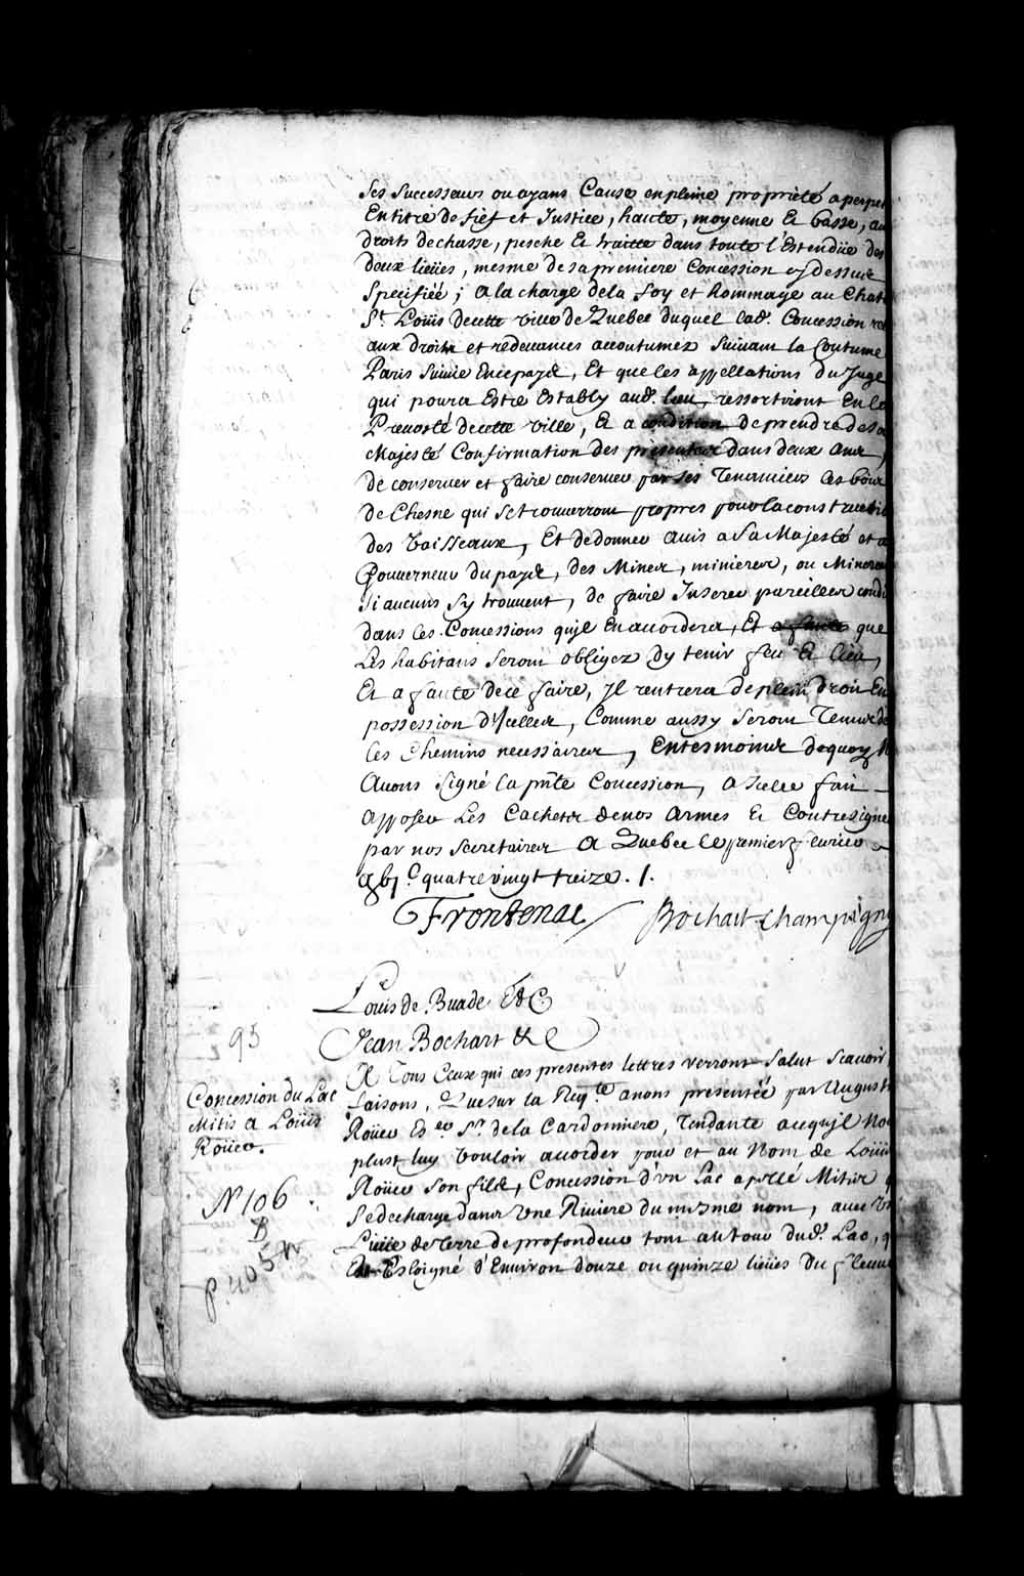 Ses Successeurs ou ayans Cause en pleine propriété a perpe
En titre de fief et Justice, haute, moyenne & basse, au
droits de chasse, pesche & traitte dans toute l'Estendüe des
deux lieües, mesme de sa premiere Concession cy dessus
Specifiée; a la charge de la foy et hommage au Chat
St. Loüis de cette ville de Quebec duquel lad. Concession
aux droits et redevances accoutumez Suivant la Coutume
Paris Suivie en ce payes, Et que les appellations du Juge
qui poura Estre Estably aud. lieu, ressortiront En la
Prevosté de cette ville, & a condition de prendre de sa
Majesté Confirmation des presentes dans deux ans,
de conserver et faire conserver par ses Tenanciers les bois
de Chesne qui se trouverront propres pour la constructi
des Vaisseaux, Et de donner avis a Sa Majesté et a
Gouverneur du payes, des Mines, minieres, ou Mineraux
si aucuns s'y trouvent, de faire Inserer pareilles condi
dans les Concessions qu'jl En accordera, Et que
Les habitans seront obligez d'y tenir feu & lieu,
Et a faute de ce faire, Jl rentrera de plein droit En
possession d'Jcelles, Comme aussy seront Tenus de
les Chemins necessaires, En tesmoins de quoy N
Avons signé la pnte Concession, a Jcelle fait
apposer Les Cachets de nos armes & Contresigne
par nos Secretaires A Quebec le premier fevrier
gbj.c quatre vingt treize. /.
Frontenac Bochart Champigny
Louis de Buade &C
Jean Bochart &C
95
A Tous Ceux qui ces presentes lettres verront Salut Scavoir
Concession du Lac
Mitis a Loüis
Roüer.
faisons, Que sur la Reqte. a nous presentée par August
Roüer Sr. de la Cardonniere, Tendante a ce qu'jl No
plust luy vouloir accorder pour et au Nom de Loüis
Roüer son fils, Concession d'vn Lac apellé Mitis q
N° 106
B
p. 405
Se decharge dans Vne Riviere du mesme nom, avec Vn
Lieüe de terre de profondeur tout autour dud. Lac, q
Esloigné d'Environ douze ou quinze lieües du fleuve